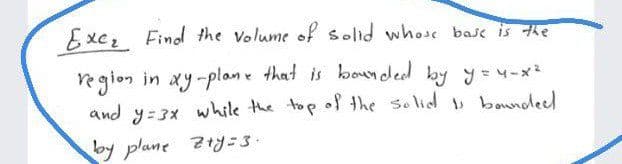 Exe2 Find the volume of solid whose base is the
region in xy-plane that is bounded by y = 4-x²
and y=3x while the top of the solid is bounded
by plane z+y=3.